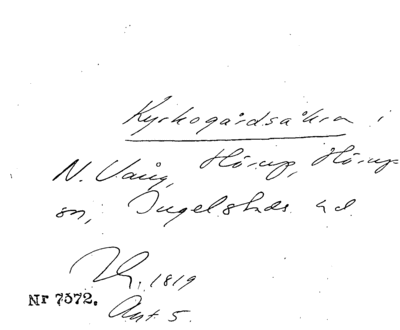 Kyrkogårdsåkra i
N. Vång, Hörup, Hörup
sn, Ingelstads hd
1819
Nr 7372. Akt 5.